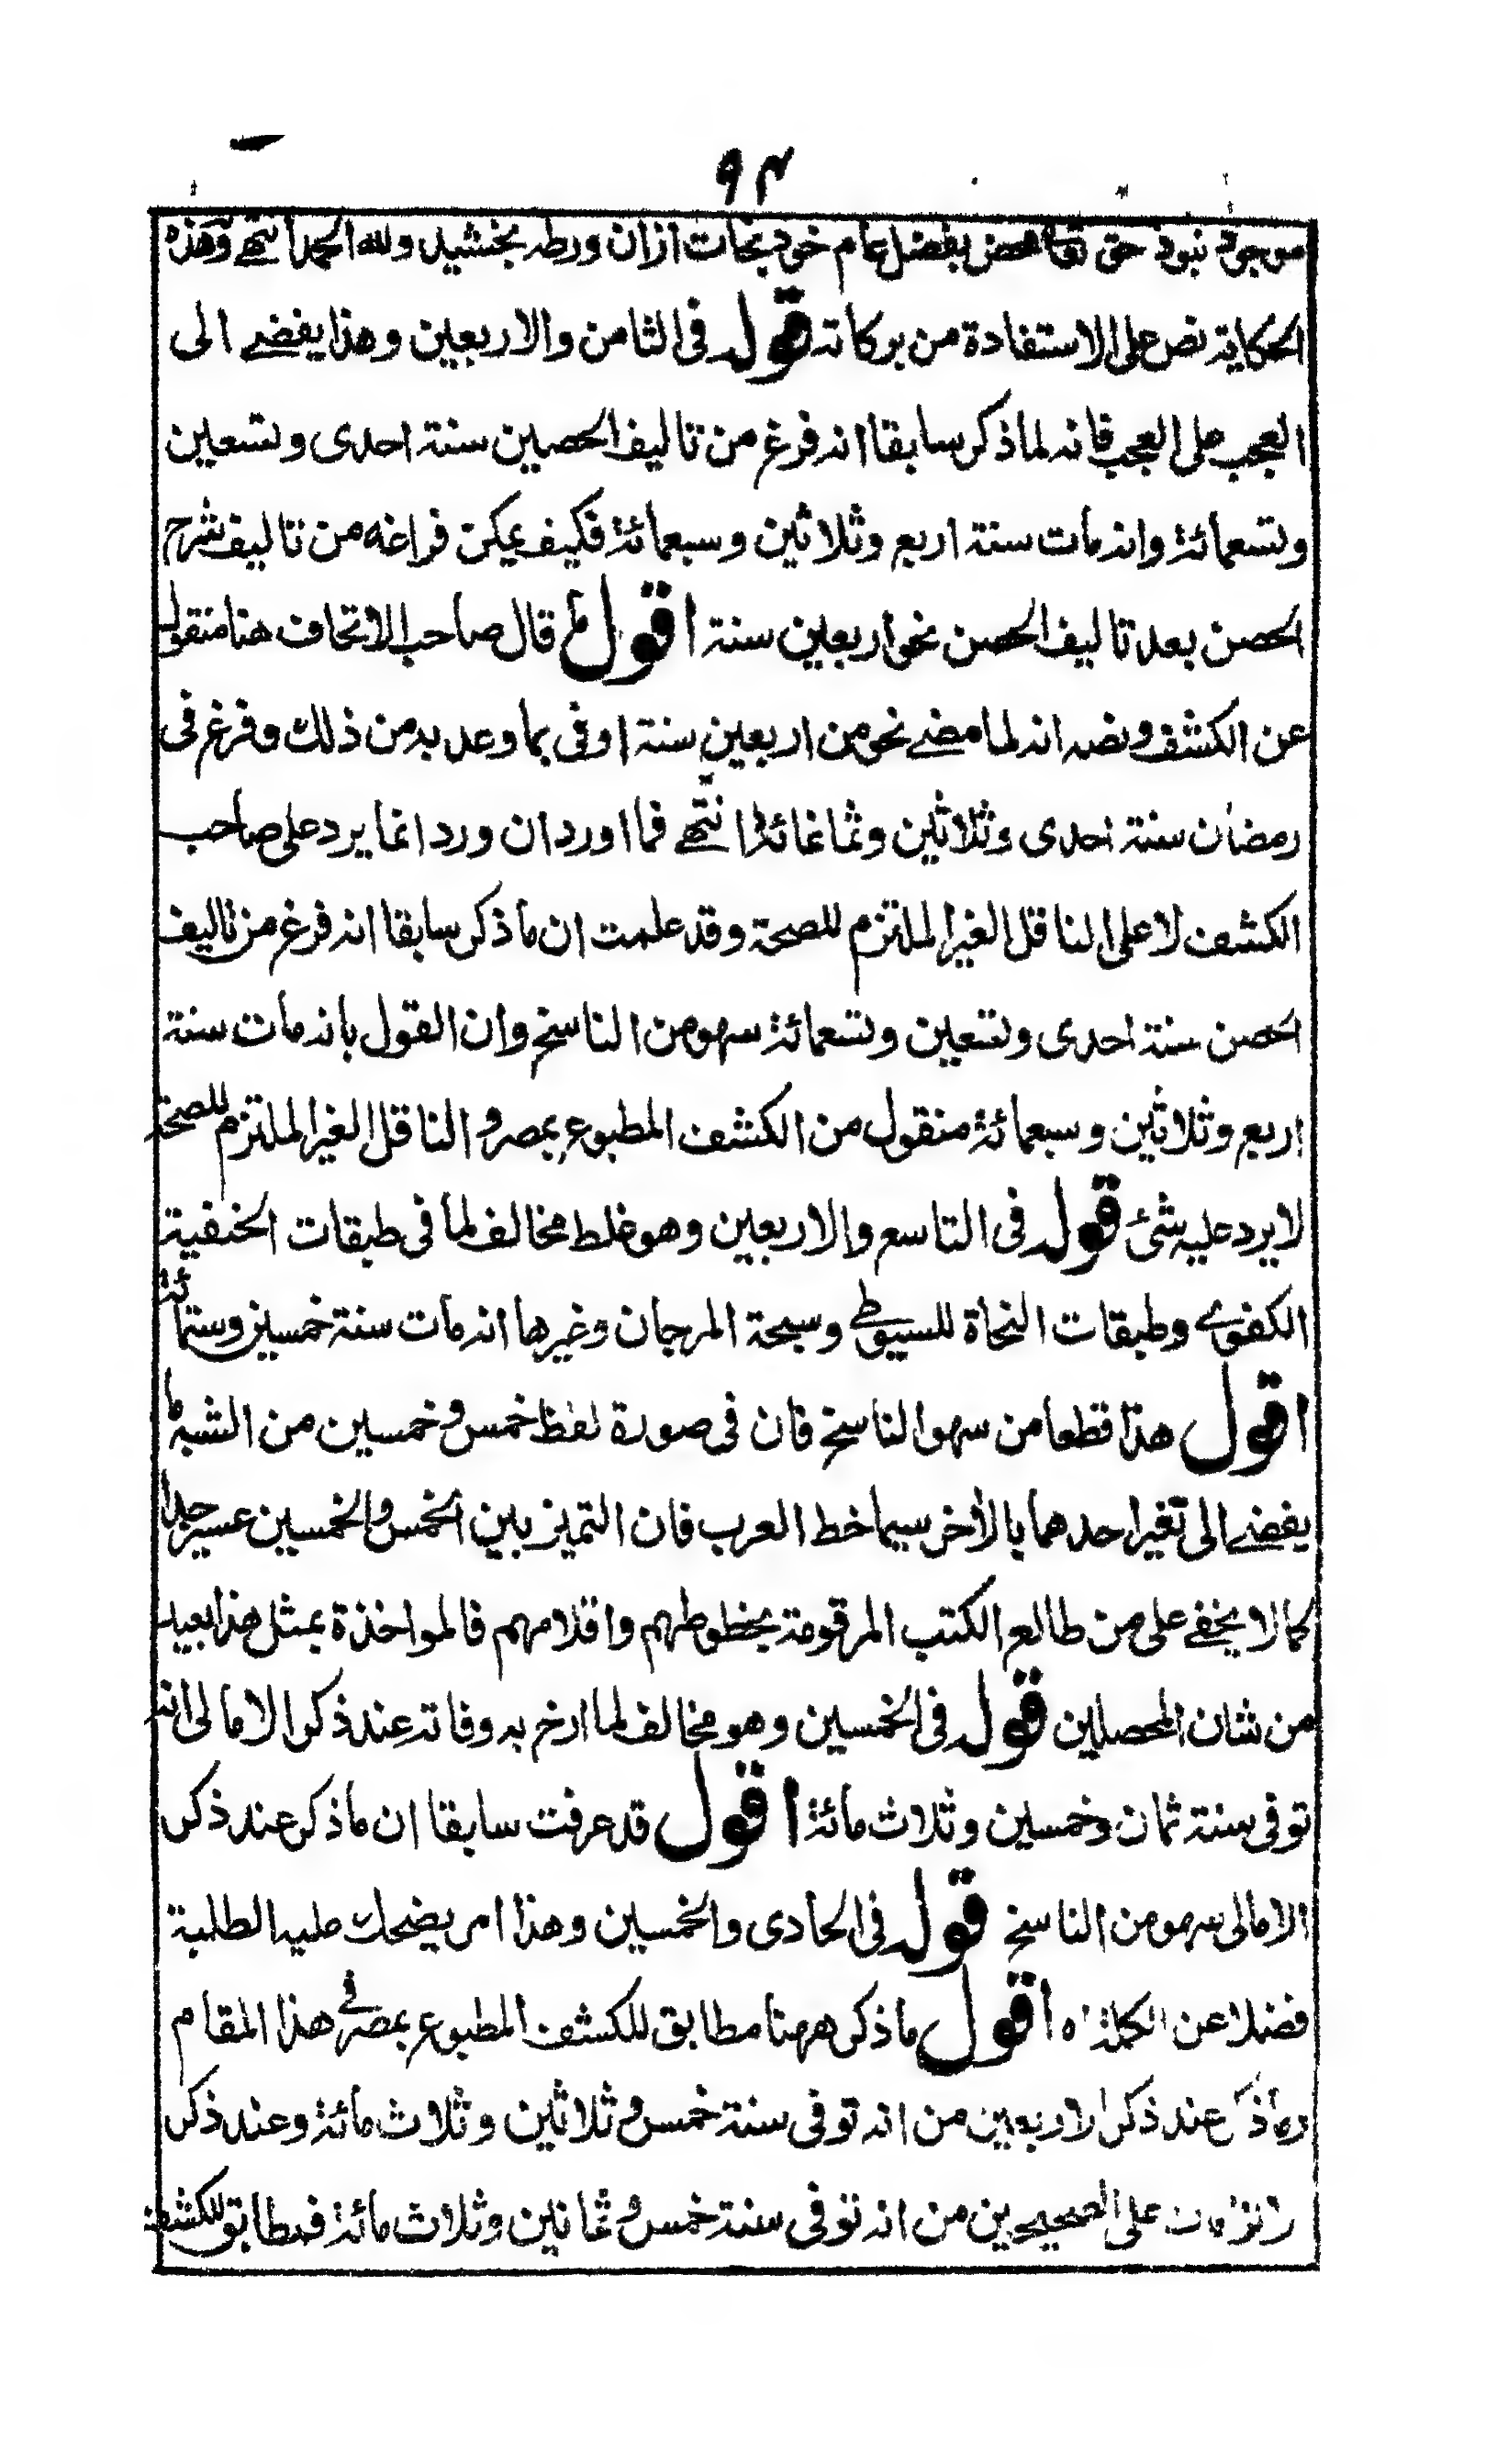 ٩٤
موجود نبود حق تعالى محض بفضل عام خود نجات ازان ورطه بخشيد ولله الحمد انتهى وهذه
الحكاية نص على الاستفادة من بركاته قوله فى الثامن والاربعين وهذا يفضے الى
العجب على العجب فانه لما ذكر سابقا انه فرغ من تاليف الحصين سنة احدى وتسعين
وتسعمائة وانه مات سنة اربع وثلاثين وسبعمائة فكيف يمكن فراغه من تاليف شرح
الحصن بعد تاليف الحصن نحو اربعين سنة اقول قال صاحب الاتحاف هنا منقولا
عن الكشف ونصه انه لما مضے نحو من اربعين سنة اوفى بما وعد به من ذلك وفرغ فى
رمضان سنة احدى وثلاثين وثمانمائة انتهے فما اورد ان ورد انما يرد على صاحب
الكشف لا على الناقل الغير الملتزم للصحة وقد علمت ان ما ذكر سابقا انه فرغ من تاليف
الحصن سنة احدى وتسعين وتسعمائة سهو من الناسخ وان القول بانه مات سنة
اربع وثلاثين وسبعمائة منقول من الكشف المطبوع بمصر و الناقل الغير الملتزم للصحة
لا يرد عليه شئ قوله فى التاسع والاربعين وهو غلط مخالف لما فى طبقات الحنفية
الكفوے وطبقات النحاة للسيوطے وسبحة المرجان وغيرها انه مات سنة خمسين وستمائة
اقول هذا قطعا من سهو الناسخ فان فى صورة لفظ خمس وخمسين من الشبه ما
يفضے الى تغير احدهما بالأخر سيما خط العرب فان التميز بين الخمس والخمسين عسير جدا
كما لا يخفے على من طالع الكتب المرقومة بخطوطهم واقلامهم فالمواخذة بمثل هذا بعيد
من شان المحصلين قوله فى الخمسين وهو مخالف لما ارخ به وفاته عند ذكر الامالى انه
توفى سنة ثمان وخمسين وثلاث مائة اقول قد عرفت سابقا ان ما ذكر عند ذكر
الامالى سهو من الناسخ قوله فى الحادى والخمسين وهذا امر يضحك عليه الطلبة
فضلا عن الكملة اه اقول ما ذكر ههنا مطابق للكشف المطبوع بمصر فے هذا المقام
وما ذكر عند ذكر الاربعين من انه توفى سنة خمس وثلاثين وثلاث مائة وعند ذكر
الزامات على الصحيحين من انه توفى سنة خمس وثمانين وثلاث مائة فمطابق للكشف